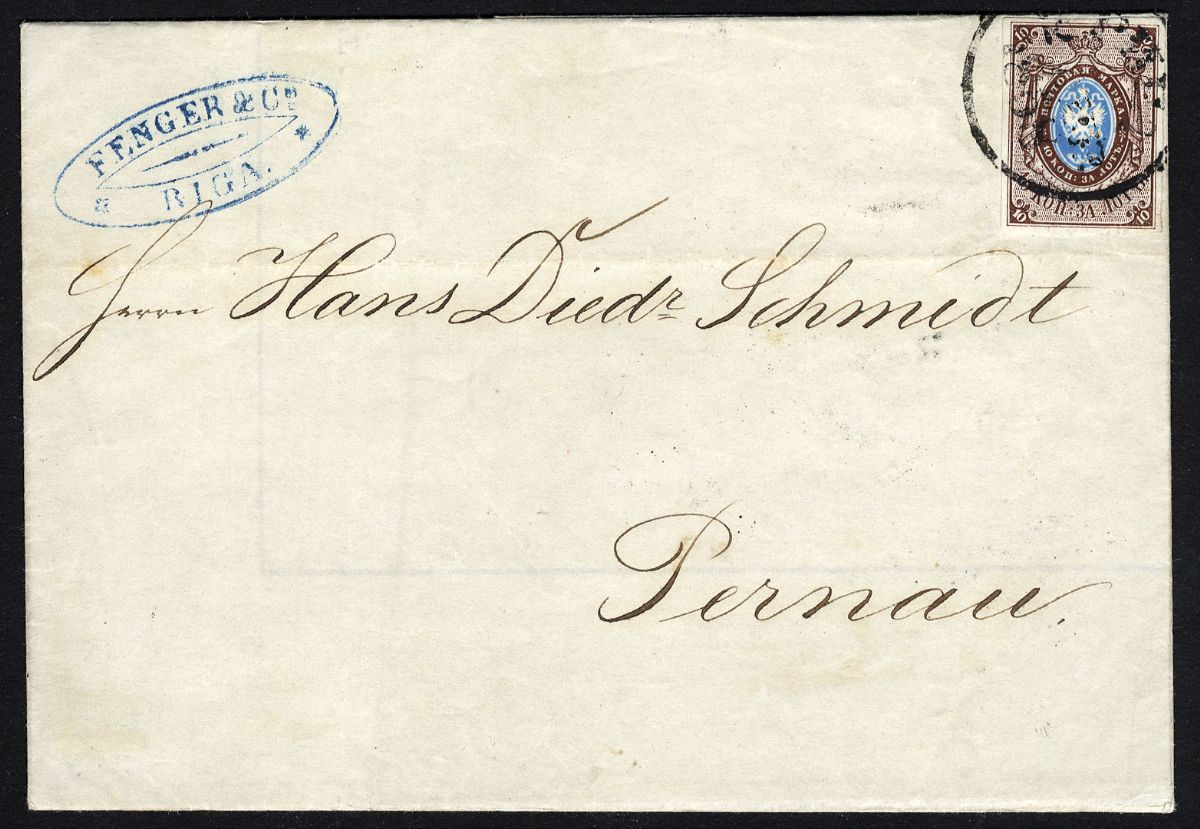 FENGER & Co
RIGA.
10 10
ПОЧТОВАЯ МАРКА
10 КОП: ЗА ЛОТЪ
10 КОП: ЗА ЛОТЪ
10 10
Herrn Hans Diedr Schmidt
Pernau.